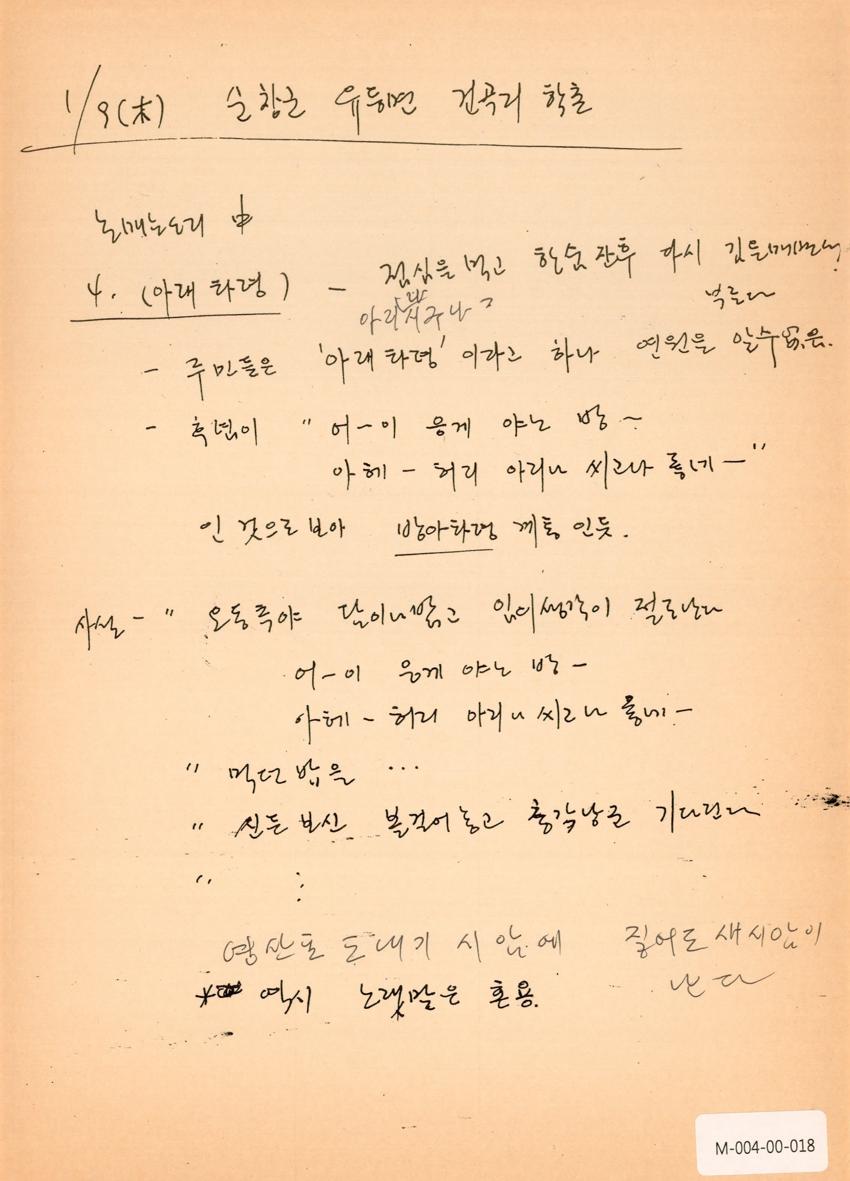 1/9(木) 순창군 유등면 건곡리 학촌
논매는소리 中
4. (아래타령) - 점심을 먹고 한숨 잔후 다시 김을매면서
부른다
아리씨구나
- 주민들은 '아래타령' 이라고 하나 연원을 알수없음.
- 후렴이 " 어-이 응게 야노 방~
아헤 - 허리 아리나 씨고나 좋네 - "
인 것으로 보아 방아타령 계통 인듯.
사설 - " 오동추야 달이나밝고 임의생각이 절로난다
어-이 응게 야노 방 -
아헤 - 허리 아리나 씨고나 좋네 -
" 먹던 밥을 ...
" 신든 보신 볼걸어놓고 총각낭군 기다린다
" ⋮
영산포 도내기 시암에 짚어도 새시암이
난다
* 역시 노랫말은 혼용.
M-004-00-018